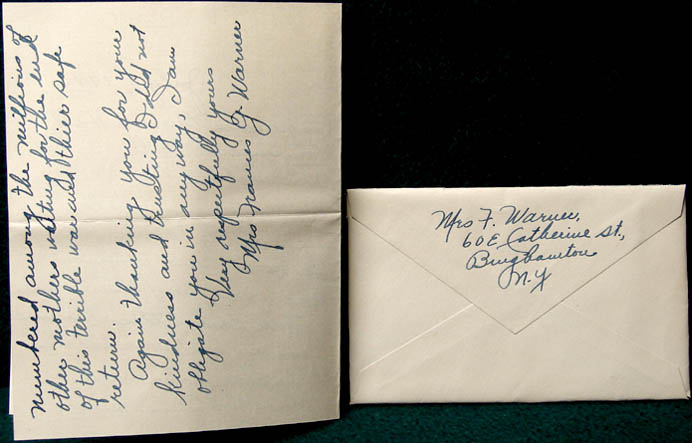 numbered among the millions of
other mothers waiting for the end
of this terrible war and thier safe
return.
Again thanking you for your
kindness and trusting I did not
obligate you in any way, I am
Very respectfully yours
Mrs Frances J. Warner
Mrs F. Warner,
60 E Catherine St.,
Binghamton
N.Y